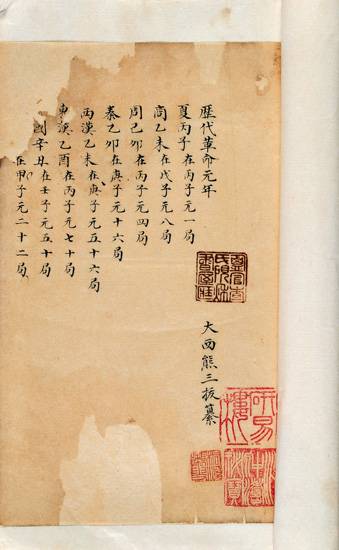 歷代革命元年
大西熊三拔纂
夏丙子在丙子元一局
商乙未在戊子元八局
周己卯在丙子元四局
秦乙卯在庚子元十六局
西漢乙未在庚子元五十六局
東漢乙酉在丙子元七十局
辛丑在壬子元五十局
在甲子元二十二局
研易樓